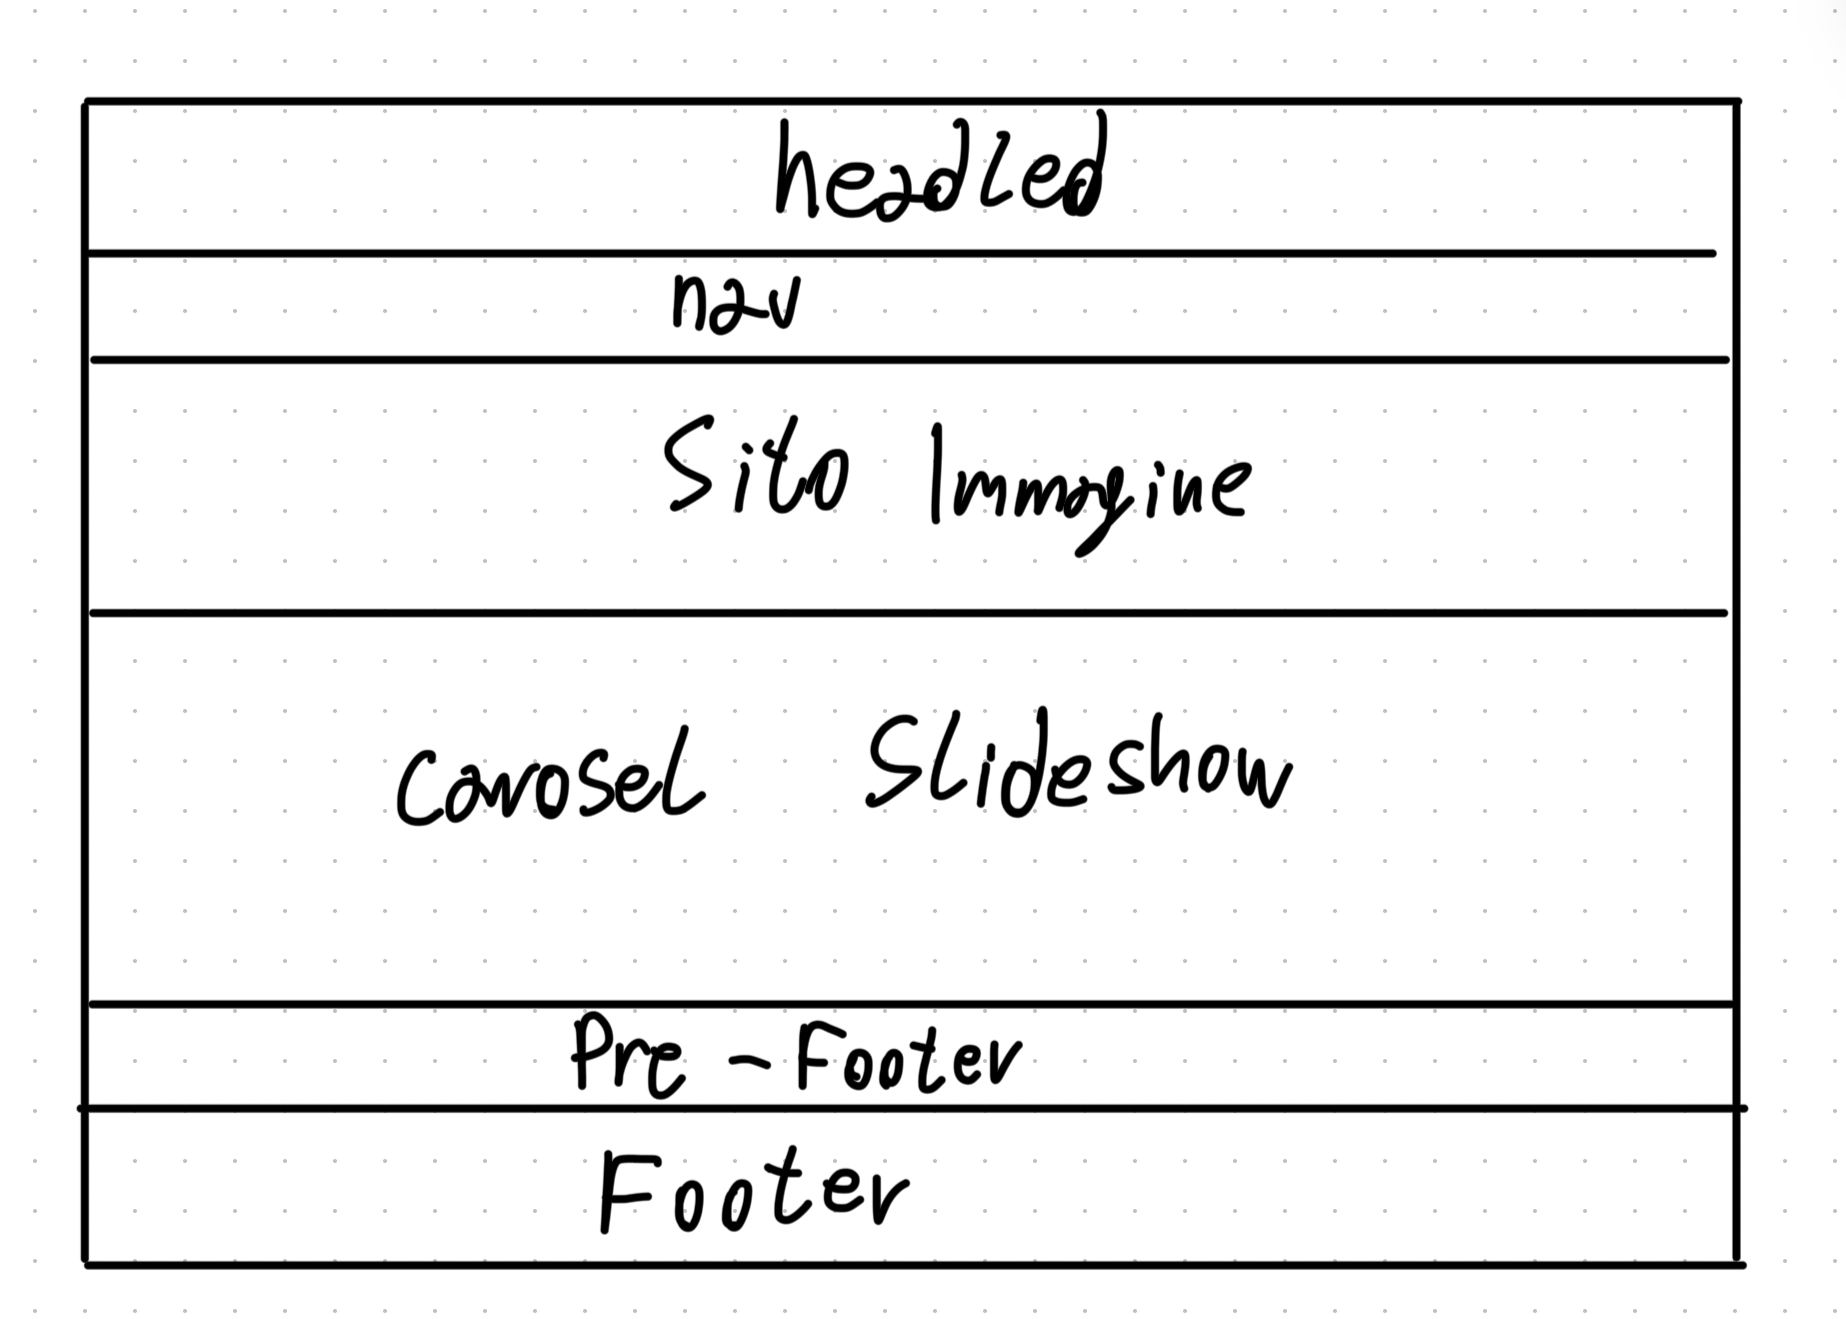 headled
nav
Sito Immagine
Carosel Slideshow
Pre - Footer
Footer